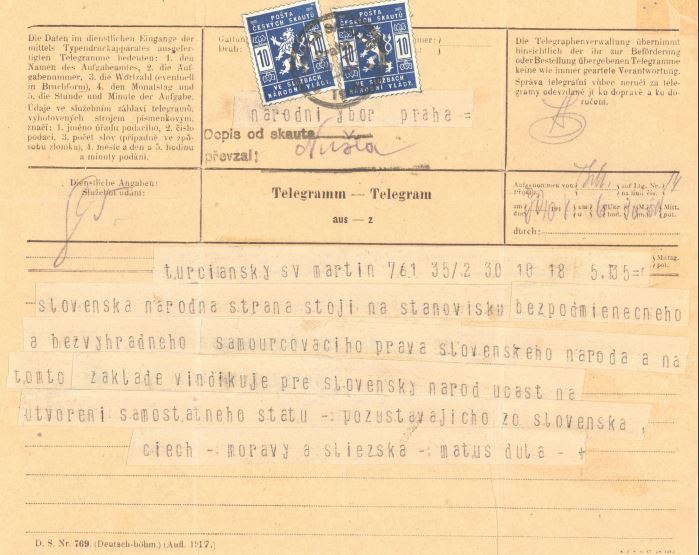 POŠTA
ČESKÝCH SKAUTŮ
10
10
VE SLUŽBÁCH
NÁRODNÍ VLÁDY.
POŠTA
ČESKÝCH SKAUTŮ
10
10
VE SLUŽBÁCH
NÁRODNÍ VLÁDY.
Die Daten im dienstlichen Eingange der
mittels Typendruckapparates ausgefer-
tigten Telegramme bedeuten: 1. den
Namen des Aufgabeamtes, 2. die Auf-
gabenummer, 3. die Wortzahl (eventuell
in Bruchform), 4. den Monatstag und
5. die Stunde und Minute der Aufgabe.
Údaje ve služebním záhlaví telegramů,
vyhotovených strojem písmenkovým,
značí: 1. jméno úřadu podacího, 2. číslo
podací, 3. počet slov (případně ve způ-
sobu zlomku), 4. měsíc a den a 5. hodinu
a minuty podání.
Die Telegraphenverwaltung übernimmt
hinsichtlich der ihr zur Beförderung
oder Bestellung übergebenen Telegramme
keine wie immer geartete Verantwortung.
Správa telegrafní vůbec neručí za tele-
gramy odevzdané jí ku dopravě a ku do-
ručení.
narodni vybor praha =
Dopis od skauta
převzal:
Dienstliche Angaben:
Služební udání:
Telegramm — Telegram
aus — z
Aufgenommen von
auf Ltg. Nr.
durch:
turciansky sv martin 761 35/2 30 10 18 5.35=
slovenska narodna strana stoji na stanovisku bezpodmienecneho
a bezvyhradneho samourcovaciho prava slovenskeho naroda a na
tomto zaklade vindikuje pre slovensky narod ucast na
utvoreni samostatneho statu - pozustavajicho zo slovenska ,
ciech - moravy a sliezska - matus dula - +
D. S. Nr. 769. (Deutsch-böhm.) (Aufl. 1917.)